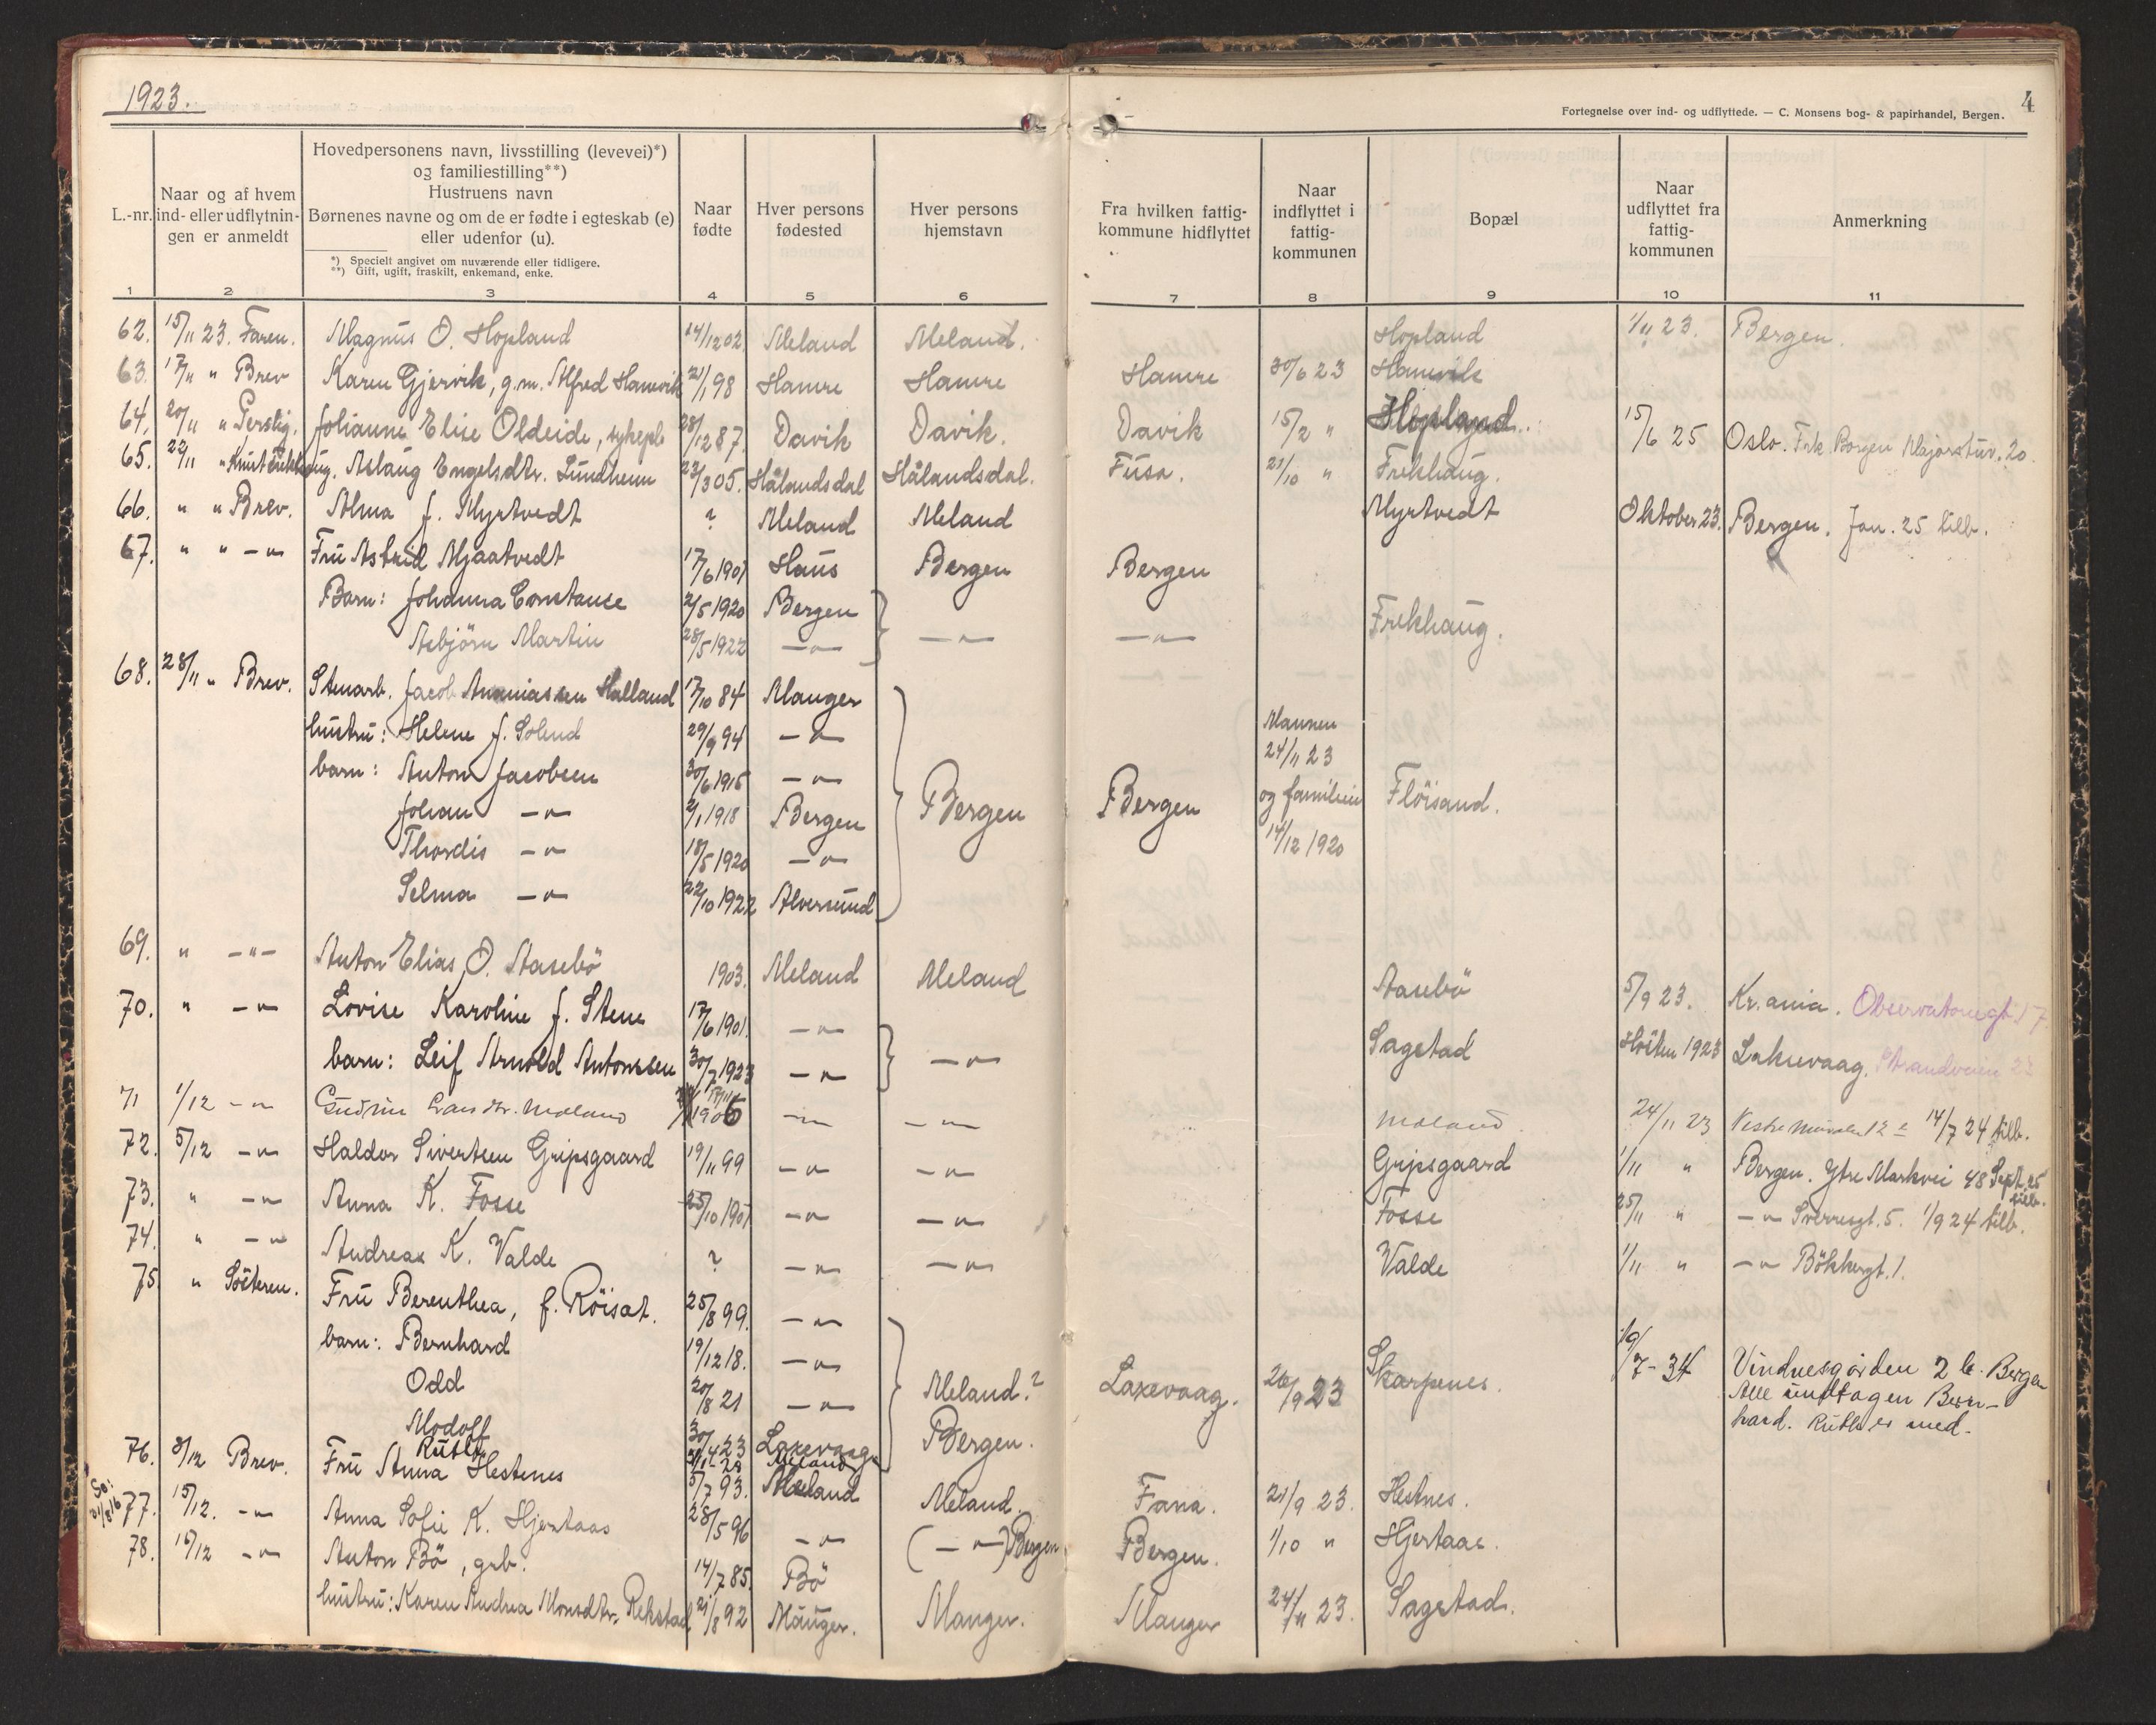 1923.
4
Fortegnelse over ind- og udflyttede. — C. Monsens bog- & papirhandel, Bergen.
L.-nr.
Naar og af hvem ind- eller udflytnin- gen er anmeldt
Hovedpersonens navn, livsstilling (levevei)*)
og familiestilling**)
Hustruens navn
Børnenes navne og om de er fødte i egteskab (e)
eller udenfor (u).
*) Specielt angivet om nuværende eller tidligere.
**) Gift, ugift, fraskilt, enkemand, enke.
Naar fødte
Hver persons fødested
Hver persons hjemstavn
Fra hvilken fattig- kommune hidflyttet
Naar indflyttet i fattig- kommunen
Bopæl
Naar udflyttet fra fattig- kommunen
Anmerkning
1 2 3 4 5 6 7 8 9 10 11
62. 15/11 23. Faren. Magnus O. Hopland 14/12 02. Meland Meland. Hopland 1/11 23. Bergen.
63. 17/11 " Brev Karen Gjervik, g.m. Alfred Hanevik 21/1 98 Hamre Hamre Hamre 30/6 23 Hanevik
64. 20/11 " Perslig. Johanne Elise Oldeide, sykepl 28/12 87. Davik Davik. Davik 15/2 " Hopland. 15/6 25 Oslo. Frk. Borgen Majorstuv. 20.
65. 22/11 " Knut Frekhaug. Aslaug Engelsdtr. Lundheim 23/3 05. Hålandsdal Hålandsdal. Fusa. 21/10 " Frekhaug.
66. " " Brev. Alma f. Myrtvedt ? Meland Meland Myrtvedt Oktober 23. Bergen. Jan. 25 tilb.
67. " " -"- Fru Astrid Mjaatvedt 17/6 1901 Haus Bergen Bergen
Barn: Johanna Constance 2/5 1920 Bergen
Asbjörn Martin 28/5 1922 -"- -"- -"- Frekhaug.
68. 28/11 " Brev. Stenarb. Jacob Ananiassen Halland 17/10 84 Manger
hustru: Helene f. Solend 29/9 94 -"- Mannen
barn: Anton Jacobsen 30/6 1915 -"- 24/11 23
Johan -"- 2/1 1918 Bergen Bergen Bergen og familien Flöisand.
Thordis -"- 18/5 1920 -"- 14/12 1920
Selma -"- 22/10 1922 Alversund
69. " -"- Anton Elias O. Aasebö 1903. Meland Meland Aasebö 5/9 23. Kr.ania. Observatoriegt. 17.
70. " -"- Lovise Karoline f. Stene 17/6 1901. -"- Sagstad Hösten 1923 Laksevaag. Strandveien 23
barn: Leif Arnold Antonssen 30/7 1923 -"- -"-
71 1/12 -"- Gudrun Larsdtr. Moland 1906 -"- -"- Moland. 24/11 23 14/7 24 tilb.
72. 5/12 -"- Haldor Sivertsen Gripsgaard 19/11 99 -"- -"- Gripsgaard 1/11 " Bergen. Ytre Markvei 48 Sept. 25 tilb.
73. " -"- Anna K. Fosse 25/10 1901 -"- -"- Fosse 25/11 " -"- Sverresgt. 5. 1/9 24 tilb.
74. " -"- Andreas K. Valde ? -"- -"- Valde 1/11 " -"- Bökkergt. 1.
75. " Sösteren. Fru Berenthea, f. Röisat. 25/8 99. -"-
barn: Bernhard 19/12 18. -"-
Odd 20/8 21 -"- Meland.? Laxevaag. 26/9 23 Skarpenes. 19/7 - 34 Vindnesgården 2 b. Bergen
Alle undtagen Bern-
hard. Ruth er med.
Modolf 30/4 23 Laxevaag Bergen.
Ruth 31/1 - 28 Meland
76. 8/12 Brev. Fru Anna Hestenes 5/7 93. Meland Meland. Fana. 21/9 23. Hestnes.
So: 31/8 16
77. 15/12. -"- Anna Sofie K. Hjertaas 28/5 96 -"- (-"-) Bergen Bergen. 1/10 " Hjertaas.
78. 16/12 -"- Anton Bö, grb. 14/7 85. Bö
hustru: Karen Andrea Monsdtr. Rekstad 21/8 92 Manger. Manger. Manger 24/11 23. Sagstad.